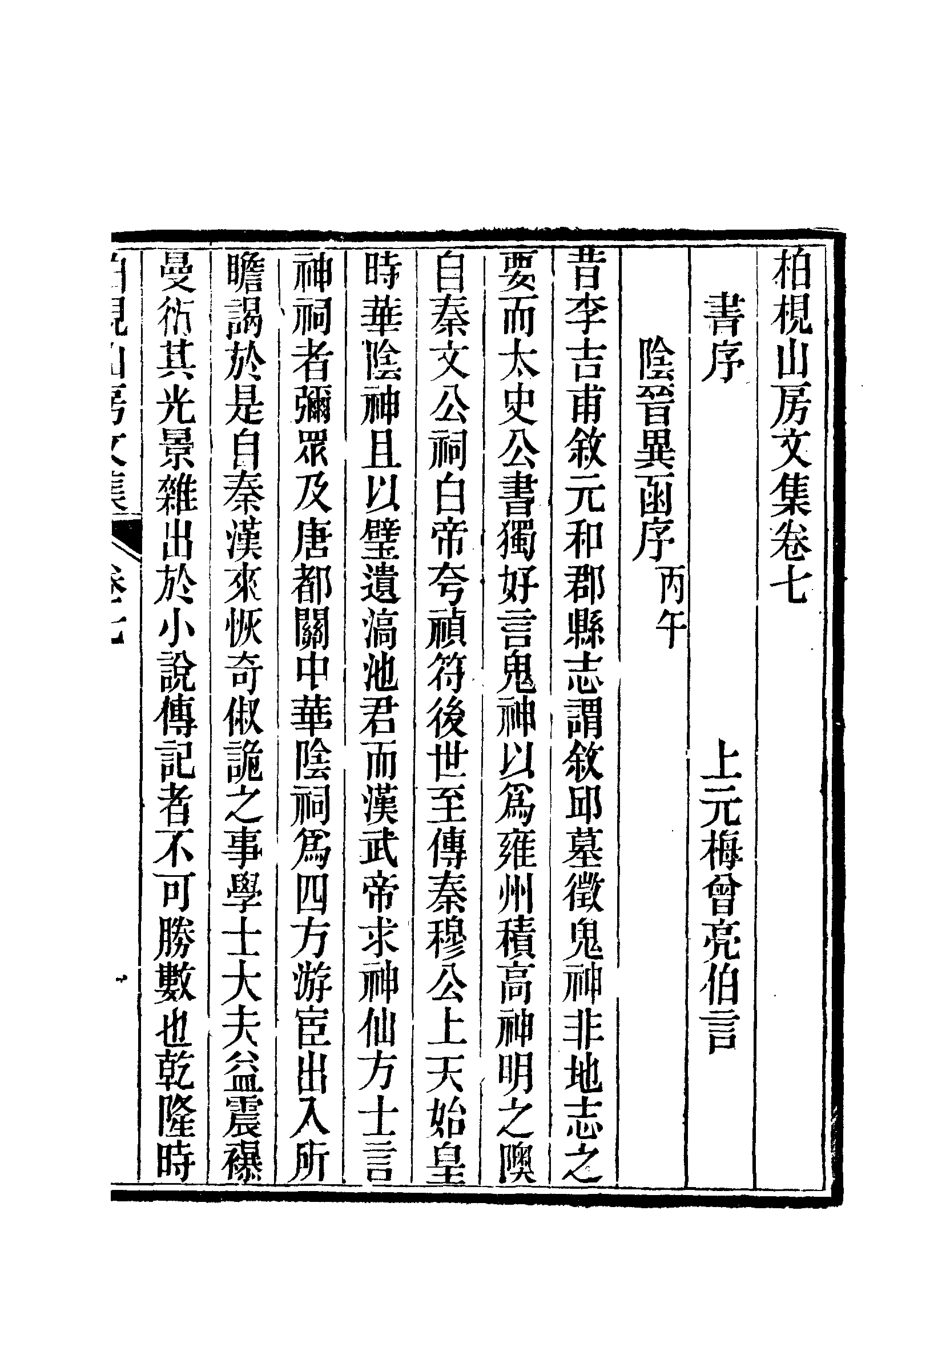 柏梘山房文集卷七
書序 上元梅曾亮伯言
陰晉異函序丙午
昔李吉甫敘元和郡縣志謂敘邱墓徵鬼神非地志之
要而太史公書獨好言鬼神以爲雍州積高神明之隩
自秦文公祠白帝夸禎符後世至傳秦穆公上天始皇
時華陰神且以璧遺滈池君而漢武帝求神仙方士言
神祠者彌眾及唐都關中華陰祠爲四方游宦出入所
瞻謁於是自秦漢來恢奇俶詭之事學士大夫益震襮
曼衍其光景雜出於小說傳記者不可勝數也乾隆時
柏梘山房文集 卷七 一